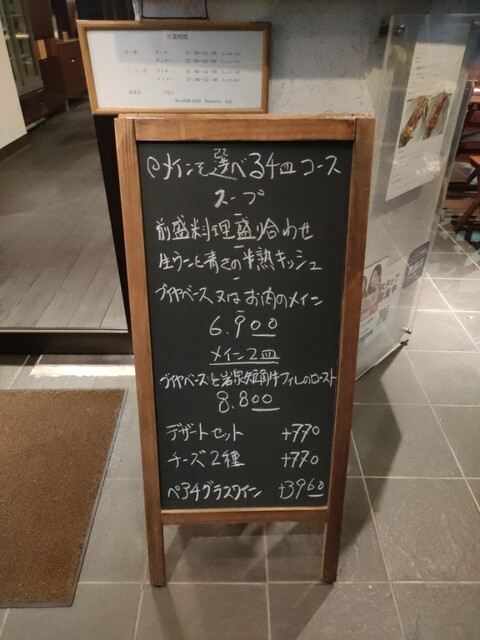 営業時間
メインを選べる4皿コース
スープ
前盛料理盛り合わせ
生うにと青さの半熟キッシュ
ブイヤベース又はお肉のメイン
6.900
メイン2皿
ブイヤベースと岩泉短角牛フィレのロースト
8.800
デザートセット +770
チーズ2種 +770
ペア4グラスワイン +3960